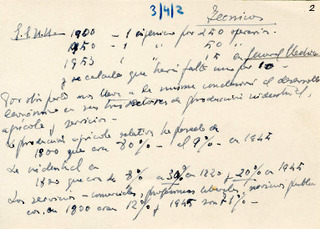 3/4/2
Tecnicos
2
1900 - 1 ingeniero por 250 operarios.
1950 - 1 " " 50 "
1953 1 " " 15 en General Electric
y se calcula que hará falta uno por 10 -
Por otra parte nos lleva a la misma conclusión el desarrollo
económico en sus tres sectores de producción industrial,
agrícola y servicios -
La producción agrícola relativa ha pasado de
1800 que era 80% - al 9% - en 1945
La industrial en
1800 que era de 8% a 30% en 1920 y 20% en 1945
Los servicios - comerciales, profesiones liberales, servicios publi
cos, en 1800 eran 12% y 1945 son 71% -